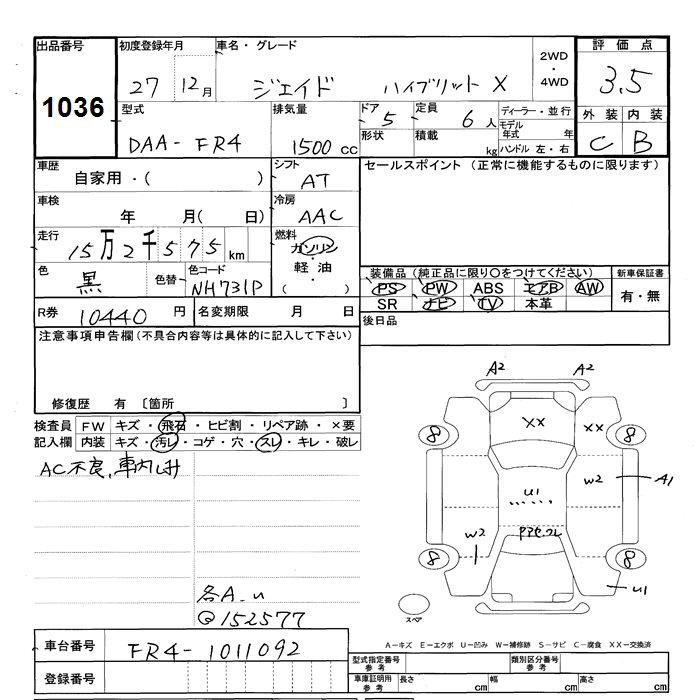 出品番号
1036
初度登録年月
27 12月
車名・グレード
ジェイド ハイブリット X
2WD
・
4WD
評価点
3.5
外装 内装
C B
型式
DAA-FR4
排気量
1500 cc
ドア
5
形状
定員
6 人
積載
kg
ディーラー・並行
モデル
年式 年
ハンドル 左・右
車歴
自家用・( )
シフト
AT
セールスポイント (正常に機能するものに限ります)
車検
年 月( 日)
冷房
AAC
走行
15万2千575 km
燃料
ガソリン
・
軽油
・
( )
色
黒
色替
色コード
NH731P
装備品 (純正品に限り○をつけてください)
PS PW ABS エアB AW
SR ナビ TV 本革
新車保証書
有・無
R券 10440 円
名変期限 月 日
後日品
注意事項申告欄 (不具合内容等は具体的に記入して下さい)
修復歴 有 〔箇所 〕
検査員 FW キズ・飛石・ヒビ割・リペア跡・×要
記入欄 内装 キズ・汚レ・コゲ・穴・スレ・キレ・破レ
AC不良、車内しみ
各A_u
152577
A2 A2
XX XX
8 8
U1
W2
A1
W2
8 8
U1
スペア
車台番号 FR4-1011092
登録番号
A−キズ E−エクボ U−凹み W−補修跡 S−サビ C−腐食 XX−交換済
型式指定番号
参考
類別区分番号
参考
車庫証明用
参考
長さ cm 幅 cm 高さ cm